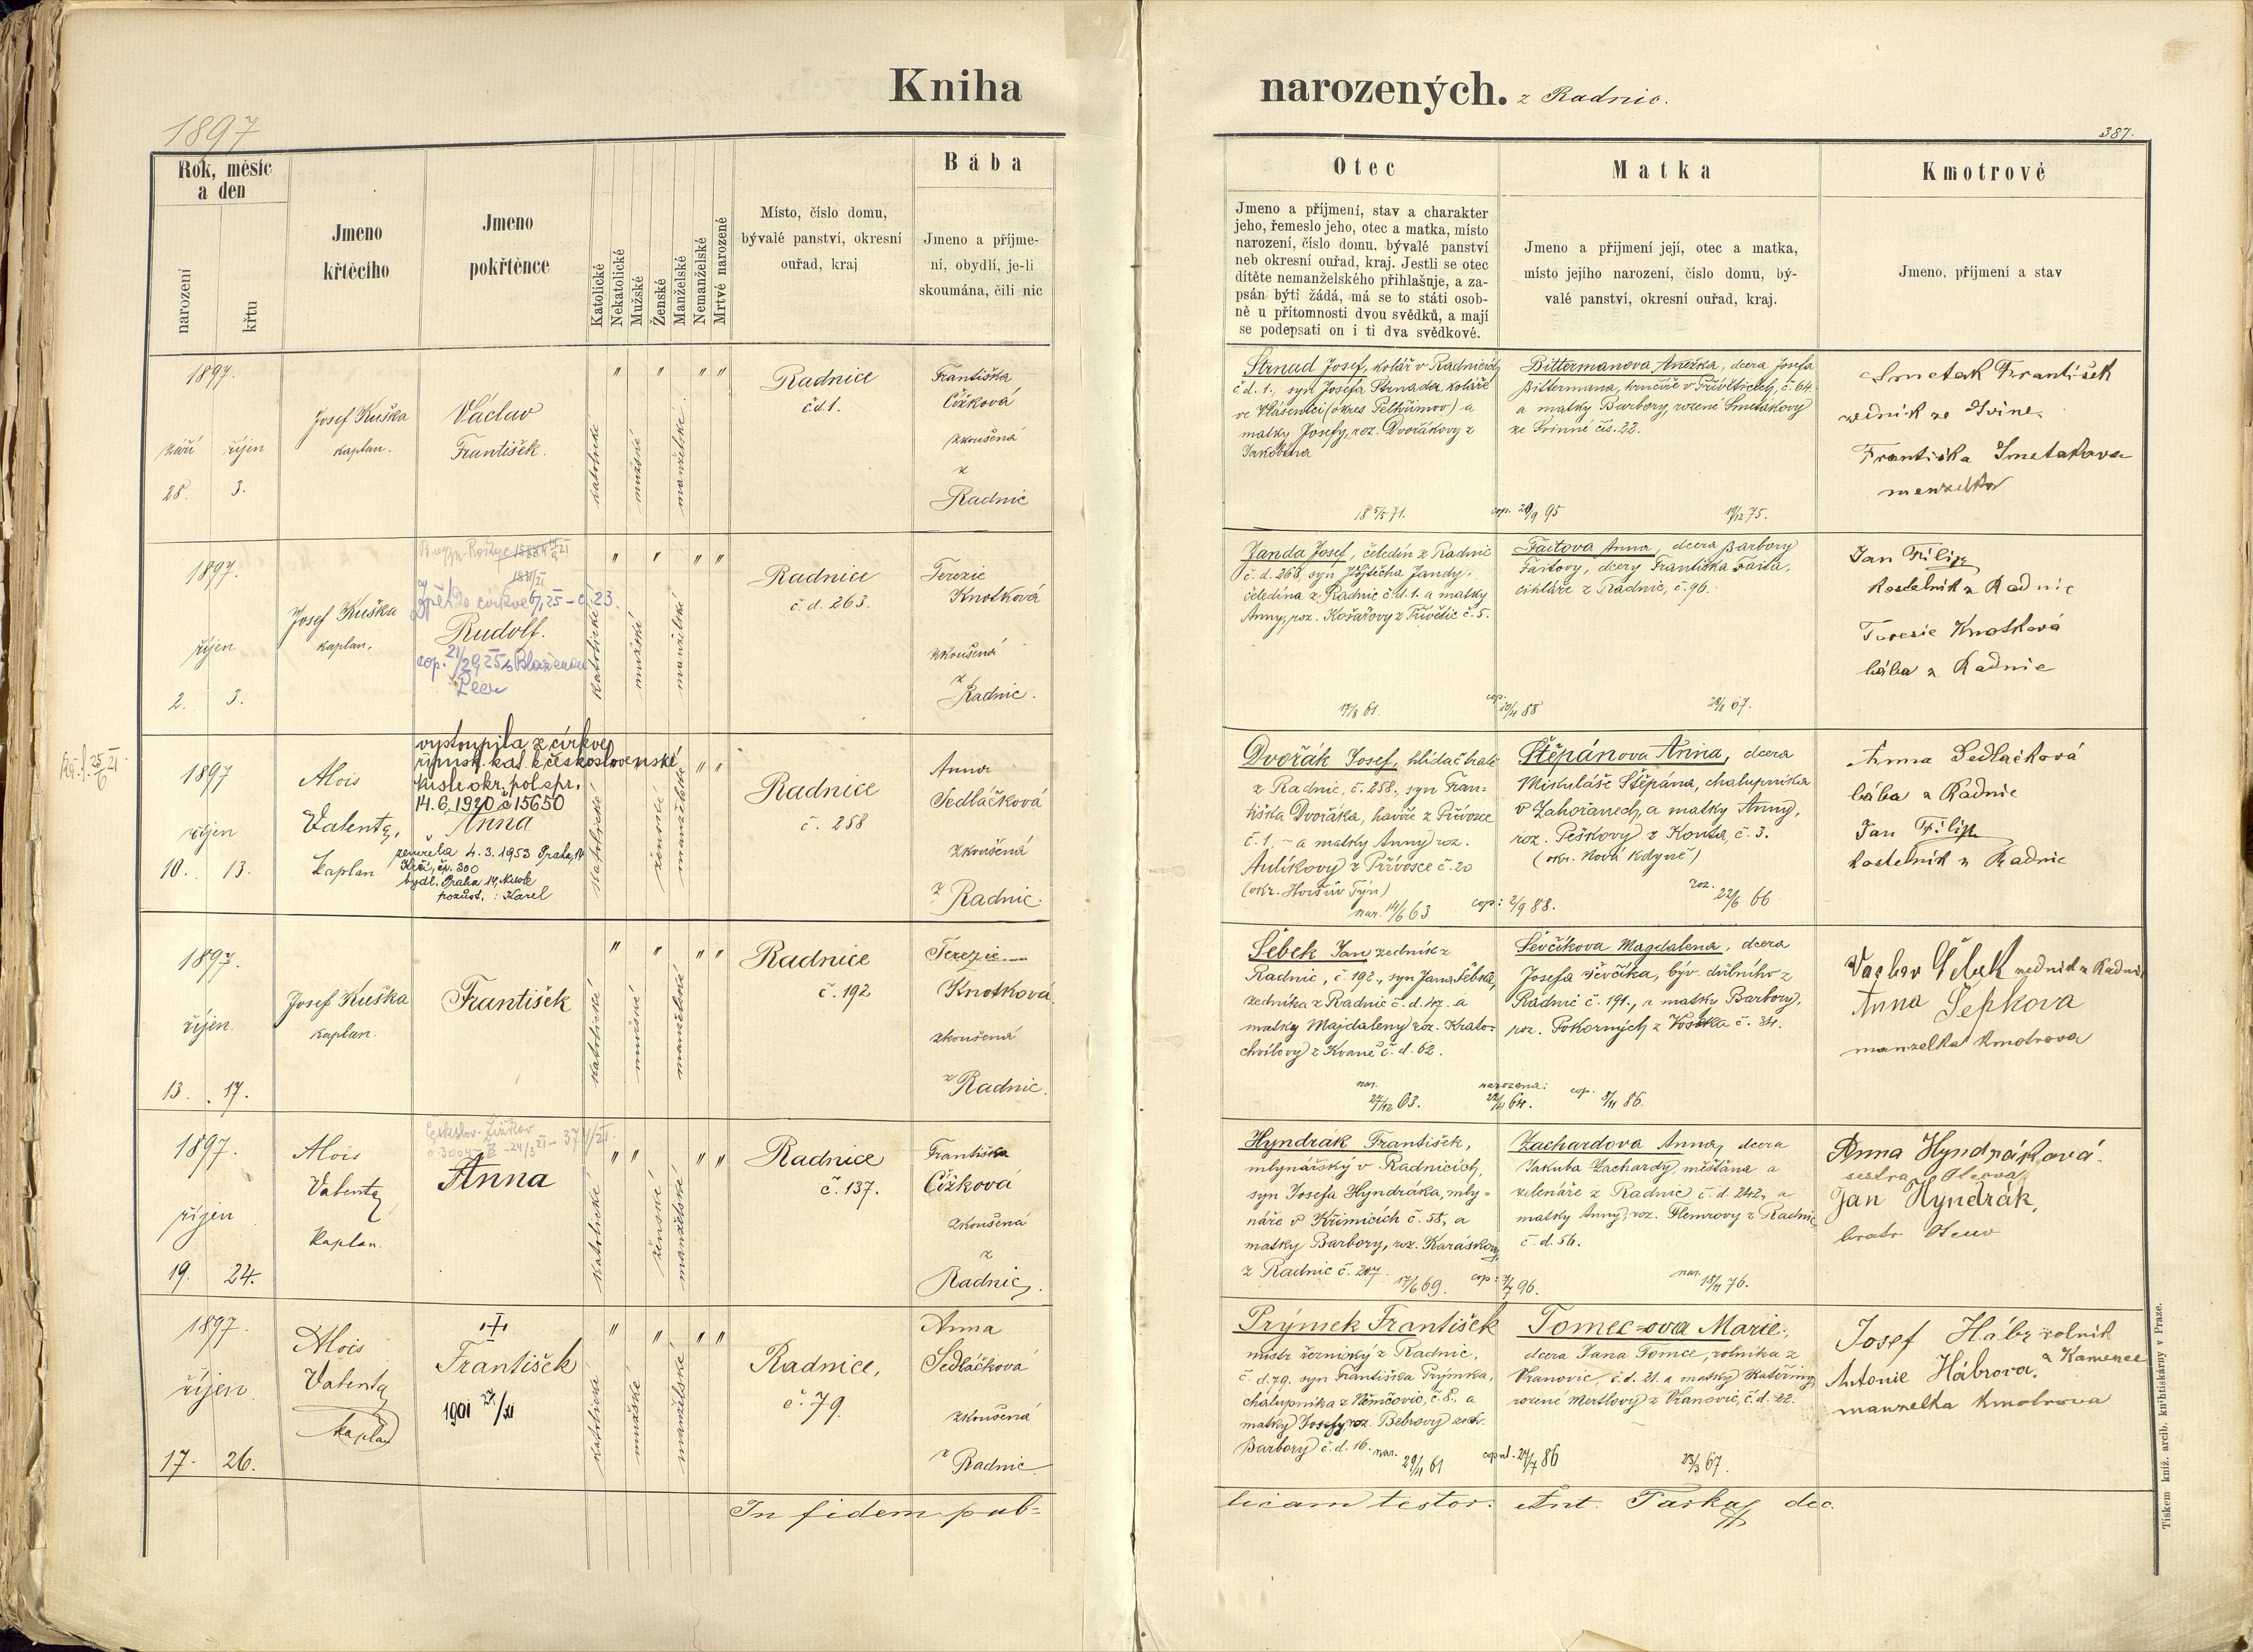 Kniha
narozených. z Radnic.
1897
387.
Rok, měsíc
a den
narození
křtu
Jmeno
křtěcího
Jmeno
pokřtěnce
Katolické
Nekatolické
Mužské
Ženské
Manželské
Nemanželské
Mrtvé narozené
Místo, číslo domu,
bývalé panství, okresní
ouřad, kraj
Bába
Jmeno a příjme-
ní, obydlí, je-li
skoumána, čili nic
Otec
Jmeno a příjmení, stav a charakter
jeho, řemeslo jeho, otec a matka, místo
narození, číslo domu, bývalé panství
neb okresní ouřad, kraj. Jestli se otec
dítěte nemanželského přihlašuje, a za-
psán býti žádá, má se to státi osob-
ně u přítomnosti dvou svědků, a mají
se podepsati on i ti dva svědkové.
Matka
Jmeno a přijmení její, otec a matka,
místo jejího narození, číslo domu, bý-
valé panství, okresní ouřad, kraj.
Kmotrové
Jmeno, příjmení a stav
1897.
září říjen
28. 3.
Josef Kuška
kaplan.
Václav
František.
katolické
mužské
manželské
Radnice
č.d.1.
Františka
Čížková
zkoušená
z
Radnic
Strnad Josef, kolář v Radnicích
č.d.1., syn Josefa Strnada, koláře
ve Vlásenici (okres Pelhřimov) a
matky Josefy, roz. Dvořákovy z
18 5/5 71.
Bittermanova Anežka, dcera Josefa
Bittermana, v Přívěticích, č. 64.
a matky Barbory, rozené Smetákovy
ze Svinné čís. 22.
cop. 20/9 95
19/12 75.
Smetak František
zedník ze Svine.
Františka Smetakova
manželka
1897.
říjen
2. 3.
Josef Kuška
kaplan.
Zpět do církve 6/1 25 - č. 23.
Rudolf.
cop. 21/2 925 s Blaženou
katolické
mužské
manželské
Radnice
č.d. 263.
Terezie
Knotková
zkoušená
z
Radnic.
Janda Josef, čeledín z Radnic
č.d. 263, syn Vojtěcha Jandy,
čeledína z Radnic č.d.1. a matky
Anny, roz. Košařovy z Přívětic č. 5.
17/3 61.
Faitova Anna, dcera Barbory
Faitovy, dcery Františka Faita,
cihláře z Radnic, č. 96.
cop. 20/11 88
28/1 67.
Jan Filip
Kostelník z Radnic
Teresie Knotková
bába z Radnic
1897
říjen
10. 13.
Alois
Valenta,
kaplan
vystoupila z církve
římsk. kat. k československé
přísl. okr. pol. spr.
14.6.1920 č 15650
Anna
zemřela 4.3.1953 Praha 14
Krč, čp. 300
bydl. Praha 14, Nusle
pozůst.: Karel
katolické
ženské
manželské
Radnice
č. 258
Anna
Sedláčková
zkoušená
z Radnic.
Dvořák Josef, hlídač trati
z Radnic, č. 258., syn Fran-
tiška Dvořáka, havíře z Přívozce
č. 1, - a matky Anny roz.
Aulíkovy z Přívozce č. 20
(okr. Horšův Týn)
nar. 14/6 63
Štěpánova Anna, dcera
Mikuláše Štěpána, chalupníka
v Zahořanech, a matky Anny,
roz. Peškovy z Kouta, č. 3.
(okr. Nová Kdyně)
cop: 2/9 88.
roz. 22/6 66
Anna Sedlačková
bába z Radnic
Jan Filip
kostelník z Radnic
1897.
říjen.
13. 17.
Josef Kuška
kaplan.
František
katolické
mužské
manželské
Radnice
č. 192
Terezie
Knotková
zkoušená
z Radnic.
Šebek Jan zedník z
Radnic, č. 192., syn Jana Šebka,
zedníka z Radnic č.d. 47. a
matky Majdaleny roz. Krato-
chvílovy z Kvaně č.d. 62.
nar. 27/12 63.
Ševčíkova Magdalena, dcera
Josefa Ševčíka, býv. důlního z
Radnic č. 191., a matky Barbory,
roz. Pokorných z Vosěka č. 34.
narozena: 22/11 64.
cop. 8/11 86.
Vaclav Šebek zedník z Radnic
Anna Šepkova
manzelka kmotrova
1897.
říjen
19. 24.
Alois
Valenta
kaplan.
Anna
katolické
ženské
manželské
Radnice
č. 137.
Františka
Čížková
zkoušená
z
Radnic.
Hyndrák František,
mlynářský v Radnicích,
syn Josefa Hyndráka, mly-
náře v Křimicích č. 58, a
matky Barbory, roz. Karáskovy
z Radnic č. 207
17/6 69.
Zachardova Anna, dcera
Jakuba Zachardy, měšťana a
zelenáře z Radnic č.d. 242, a
matky Anny, roz. Flemrovy z Radnic
č.d. 56.
cop: 7/7 96.
nar. 15/11 76.
Anna Hyndráková.
sestra Otcova
Jan Hyndrák,
bratr Otcuv
1897.
říjen
17. 26.
Alois
Valenta
kaplan
František
1901 27/XI
katolické
mužské
manželské
Radnice,
č. 79.
Anna
Sedláčková
zkoušená
z Radnic
Prýmek František
mistr řeznický z Radnic,
č.d. 79. syn Františka Prýmka,
chalupníka z Němčovic, č. 8., a
matky Josefy roz. Bebrovy
Barbory č.d. 16. nar. 29/11 61
Tomec-ova Marie,
dcera Jana Tomce, rolníka z
Vranovic, č.d. 21. a matky Kateřiny
rozené Mertlovy z Vranovic, č.d. 22.
copul. 24/7 86
23/3 67.
Josef Hábr rolník
z Kamenec
Antonie Hábrova.
manzelka kmotrova
In fidem pub-
licam testor: Ant. Taska dec.
Tiskem kníž. arcib. knihtiskárny v Praze.